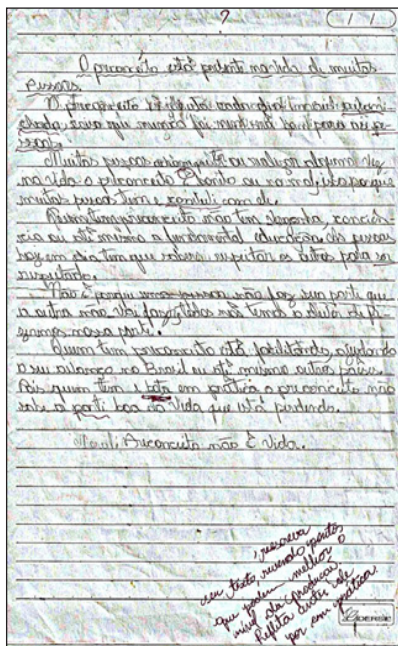 ?
O preconceito está presente na vida de muitas
pessoas.
O preconceito
coisa que nunca foi nem será bom para as pes-
soas.
Muitas pessoas ou realizou alguma vez
na vida o preconceito bonito ou normal, isso porque
muitas pessoas tem e convive com ele.
Quem tem preconceito não tem vergonha, conciên-
cia ou até mesmo a fundamental educação. As pessoas
hoje em dia tem que saber respeitar os outros para ser
respeitado.
Não é porque uma pessoa não faz sua parte que
a outra não vai fazer, todos nós temos o dever de fa-
zermos nossa parte.
Quem tem preconceito está facilitando, ajudando
o seu avanço no Brasil ou até mesmo outros países.
Pois quem tem e bota em prática o preconceito não
sabe a parte boa da vida que está perdendo.
Preconceito não é vida.
reescreva
seu texto, revendo pontos
que podem melhor o
nível da produção.
Reflita antes de
por em prática.